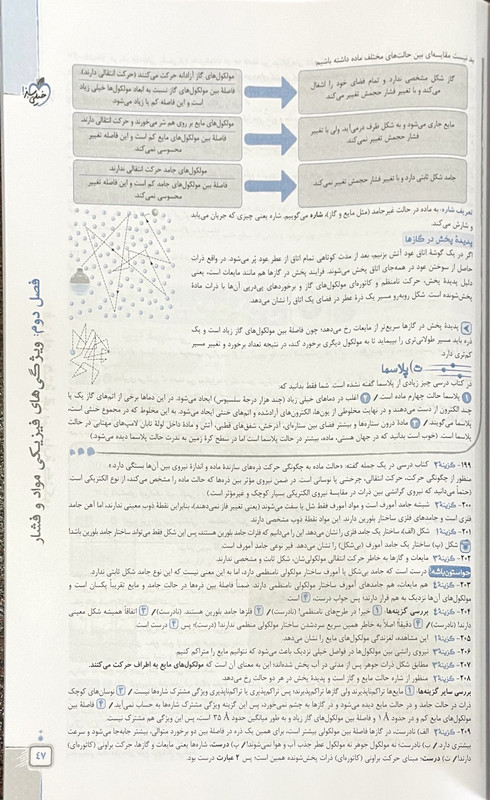 بد نیست مقایسه‌ای بین حالت‌های مختلف ماده داشته باشیم:
گاز شکل مشخصی ندارد و تمام فضای خود را اشغال می‌کند و با تغییر فشار حجمش تغییر می‌کند.
مولکول‌های گاز آزادانه حرکت می‌کنند (حرکت انتقالی دارند).
فاصلهٔ بین مولکول‌های گاز نسبت به ابعاد مولکول‌ها خیلی زیاد
است و این فاصله کم یا زیاد می‌شود.
مایع جاری می‌شود و به شکل ظرف درمی‌آید. ولی با تغییر
فشار حجمش تغییر نمی‌کند.
مولکول‌های مایع بر روی هم سُر می‌خورند و حرکت انتقالی دارند.
فاصلهٔ بین مولکول‌های مایع کم است و این فاصله تغییر
محسوسی نمی‌کند.
جامد شکل ثابتی دارد و با تغییر فشار حجمش تغییر نمی‌کند.
مولکول‌های جامد حرکت انتقالی ندارند.
فاصلهٔ بین مولکول‌های جامد کم است و این فاصله تغییر
محسوسی نمی‌کند.
تعریف شاره: به ماده در حالت غیرجامد (مثل مایع و گاز)، شاره می‌گوییم. شاره یعنی چیزی که جریان می‌یابد
و شارش می‌کند.
پدیدهٔ پخش در گازها
اگر در یک گوشهٔ اتاق عود آتش بزنیم، بعد از مدت کوتاهی تمام اتاق از عطر عود پُر می‌شود. در واقع ذرات
حاصل از سوختن عود در همه‌جای اتاق پخش می‌شوند. فرایند پخش در گازها هم مانند مایعات است، یعنی
دلیل پدیدهٔ پخش، حرکت نامنظم و کاتوره‌ای مولکول‌های گاز و برخوردهای پی‌درپی آن‌ها با ذرات مادهٔ
پخش‌شونده است. شکل روبه‌رو مسیر یک ذرهٔ عطر در فضای یک اتاق را نشان می‌دهد.
پدیدهٔ پخش در گازها سریع‌تر از مایعات رخ می‌دهد؛ چون فاصلهٔ بین مولکول‌های گاز زیاد است و یک
ذره باید مسیر طولانی‌تری را بپیماید تا به مولکول دیگری برخورد کند، در نتیجه تعداد برخورد و تغییر مسیر
کم‌تری دارد.
ت) پلاسما
در کتاب درسی چیز زیادی از پلاسما گفته نشده است. شما فقط بدانید که:
1 پلاسما حالت چهارم ماده است. / 2 اغلب در دماهای خیلی زیاد (چند هزار درجهٔ سلسیوس) ایجاد می‌شود. در این دماها برخی از اتم‌های گاز یک یا
چند الکترون از دست می‌دهند و در نهایت مخلوطی از یون‌ها، الکترون‌های آزادشده و اتم‌های خنثی ایجاد می‌شود. به این مخلوط که در مجموع خنثی است،
پلاسما می‌گویند. / 3 مادهٔ درون ستاره‌ها و بیشتر فضای بین ستاره‌ای، آذرخش، شفق‌های قطبی، آتش و مادهٔ داخل لولهٔ تابان لامپ‌های مهتابی در حالت
پلاسما است. (خوب است بدانید که در جهان هستی، ماده، بیشتر در حالت پلاسما است اما در سطح کرهٔ زمین به ندرت حالت پلاسما دیده می‌شود.)
۱۹۹- گزینهٔ ۲ کتاب درسی در یک جمله گفته: «حالت ماده به چگونگی حرکت ذره‌های سازندهٔ ماده و اندازهٔ نیروی بین آن‌ها بستگی دارد.»
منظور از چگونگی حرکت، حرکت انتقالی، چرخشی یا نوسانی است. در ضمن نیروی مؤثر بین ذره‌ها که حالت ماده را مشخص می‌کند، از نوع الکتریکی است.
(حتماً می‌دانید که نیروی گرانشی بین ذرات در مقایسهٔ نیروی الکتریکی بسیار کوچک و غیرمؤثر است.)
۲۰۰- گزینهٔ ۲ شیشه جامد آمورف است و مواد آمورف فقط شل یا سفت می‌شوند (یعنی تغییر فاز نمی‌دهند) بنابراین نقطهٔ ذوب معینی ندارند، اما آهن جامد
فلزی است و جامدهای فلزی ساختار بلورین دارند. این مواد نقطهٔ ذوب مشخصی دارند.
۲۰۱- گزینهٔ ۱ شکل (الف)، ساختار یک جامد فلزی را نشان می‌دهد. این را می‌دانیم که فلزات جامد بلورین هستند، پس این شکل فقط می‌تواند ساختار جامد بلورین باشد!
شکل (ب) ساختار یک جامد آمورف (بی‌شکل) را نشان می‌دهد. قیر نوعی جامد آمورف است.
۲۰۲- گزینهٔ ۳ مایعات و گازها به خاطر حرکت انتقالی مولکولی‌شان، شکل ثابت و مشخصی ندارند.
حواستون باشه! درست است که جامد بی‌شکل یا آمورف ساختار مولکولی نامنظمی دارد، اما به این معنی نیست که این نوع جامد شکل ثابتی ندارد.
۲۰۳- گزینهٔ ۴ هم مایعات، هم جامدهای آمورف ساختار مولکولی نامنظمی دارند. ضمناً فاصلهٔ بین ذره‌ها در حالت جامد و مایع تقریباً یکسان است و
مولکول‌های آن‌ها نزدیک به هم قرار دارند؛ پس جواب درست، 4 است.
۲۰۴- گزینهٔ ۴ بررسی گزینه‌ها: 1 خیر! در طرح‌های نامنظمی! (نادرست) / 2 فلزها جامد بلورین هستند. (نادرست) / 3 اتفاقاً همیشه شکل معینی
دارند! (نادرست) / 4 دقیقاً! اصلاً به خاطر همین سریع سردشدن ساختار مولکولی منظمی ندارند! (درست) پس 4 درست است.
۲۰۵- گزینهٔ ۱ این مشاهده، لغزندگی مولکول‌های مایع را نشان می‌دهد.
۲۰۶- گزینهٔ ۳ نیروی رانشی بین مولکول‌ها در فواصل خیلی نزدیک باعث می‌شود که نتوانیم مایع را متراکم کنیم.
۲۰۷- گزینهٔ ۳ مطابق شکل ذرات جوهر پس از مدتی در آب پخش شده‌اند؛ این به معنای آن است که مولکول‌های مایع به اطراف حرکت می‌کنند.
۲۰۸- گزینهٔ ۲ منظور از شاره حالت مایع و گاز است و پدیدهٔ پخش در هر دو حالت رخ می‌دهد.
بررسی سایر گزینه‌ها: 1 مایع‌ها تراکم‌ناپذیرند ولی گازها تراکم‌پذیرند؛ پس تراکم‌پذیری یا تراکم‌ناپذیری ویژگی مشترک شاره‌ها نیست. / 3 نوسان‌های کوچک
ذرات در حالت جامد و در حالت مایع دیده می‌شود و در گازها به چشم نمی‌خورد، پس این گزینه ویژگی مشترک شاره‌ها به حساب نمی‌آید. / 4 فاصلهٔ بین
مولکول‌های مایع کم و در حدود ۱ Å و فاصلهٔ بین مولکول‌های گاز زیاد و به طور میانگین حدود ۳۵ Å است، پس این ویژگی هم مشترک نیست.
۲۰۹- گزینهٔ ۲ الف) نادرست، در گازها فاصلهٔ بین مولکولی بیشتر است، برای همین یک ذره در فاصلهٔ بین دو برخورد متوالی، بیشتر جابه‌جا می‌شود و سرعت
بیشتری دارد. / ب) نادرست؛ نه مولکول جوهر نه مولکول عطر جذب آب و هوا نمی‌شوند! / پ) درست، شاره‌ها یعنی مایعات و گازها، حرکت براونی (کاتوره‌ای)
دارند! / ت) درست؛ مبنای حرکت براونی (کاتوره‌ای) ذرات پخش‌شونده همین است؛ پس ۲ عبارت درست بود.
فصل دوم: ویژگی‌های فیزیکی مواد و فشار
۴۷
خیلی سبز